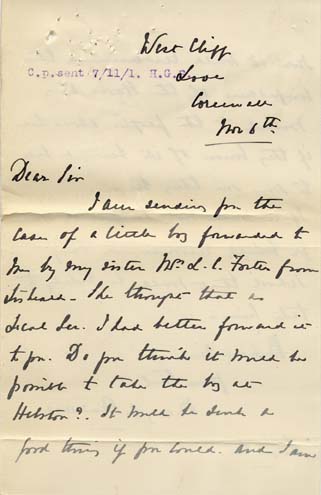 West Cliff
C.p. sent 7/11/1. H.G.
Looe
Cornwall
Nov 6th
Dear Sir
I am sending you the
case of a little boy forwarded to
me by my sister Mrs L. C. Foster from
Liskeard - She thought that as
Local Sec. I had better forward it
to you. Do you think it would be
possible to take the boy at
Helston? It would be such a
good thing if you could. and I am